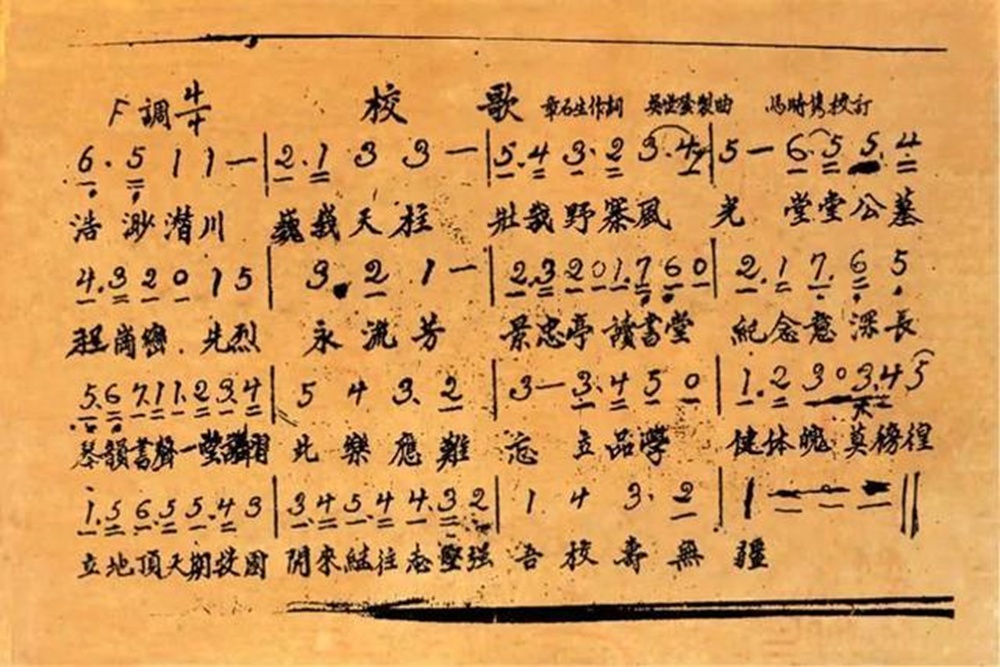 F調 4/4 校歌 章石生作詞 吳世鎣製曲 馮時儁校訂
6. 5 1 1 — | 2. 1 3 3 — | 5. 4 3. 2 3. 4 | 5 — 6. 5 5. 4
浩渺潛川 巍峩天柱 壯哉野寨風光 堂堂公墓
4. 3 2 0 1 5 | 3. 2 1 — | 2. 3 2 0 1. 7 6 0 | 2. 1 7. 6 5
崗巒 先烈永流芳 景忠亭讀書堂 紀念意深長
5. 6 7. 1 1. 2 3. 4 | 5 4 3. 2 | 3 — 3. 4 5 0 | 1. 2 3 0 3. 4 5
琴韻書聲一堂 此樂應難忘 立品學 健体魄莫徬徨
1. 5 6. 5 5. 4 3 | 3. 4 5. 4 4. 3 2 | 1 4 3. 2 | 1 — 0 — ||
立地頂天期救國 開來繼往志堅强 吾校壽無疆